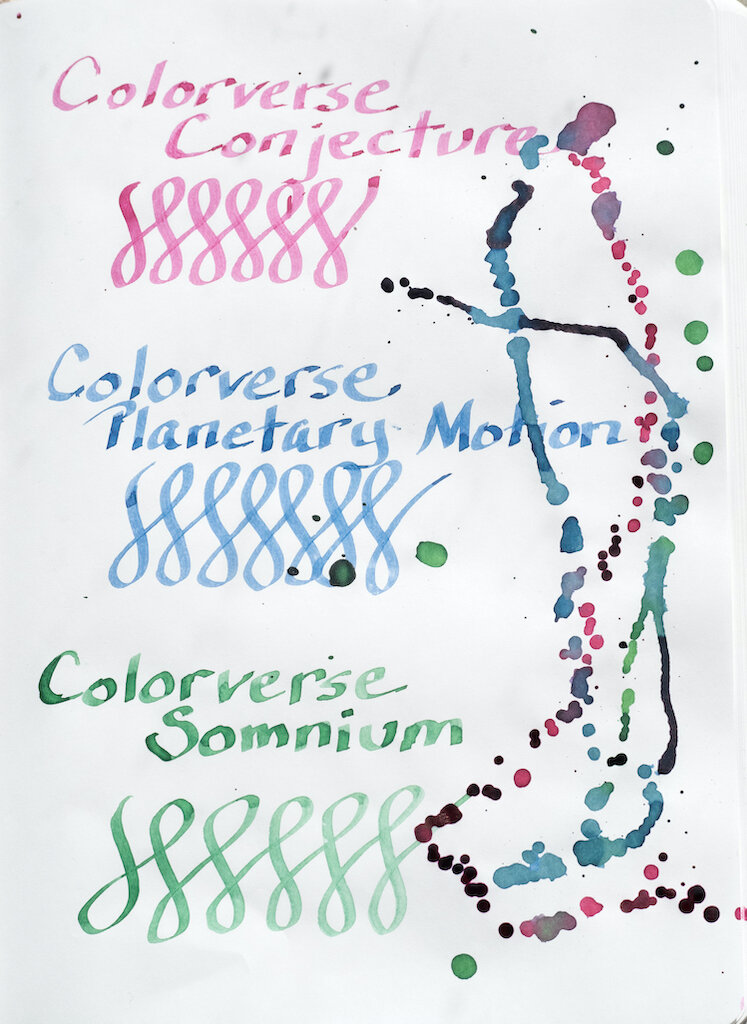 Colorverse
Conjecture
Colorverse
Planetary Motion
Colorverse
Somnium